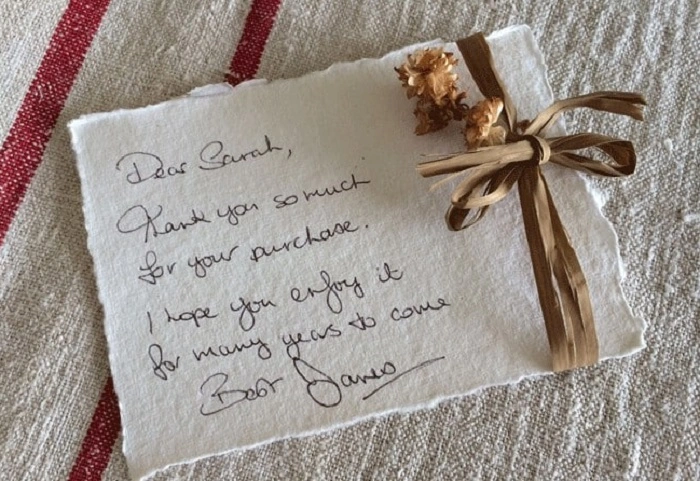 Dear Sarah,
Thank you so much
for your purchase.
I hope you enjoy it
for many years to come
Best James